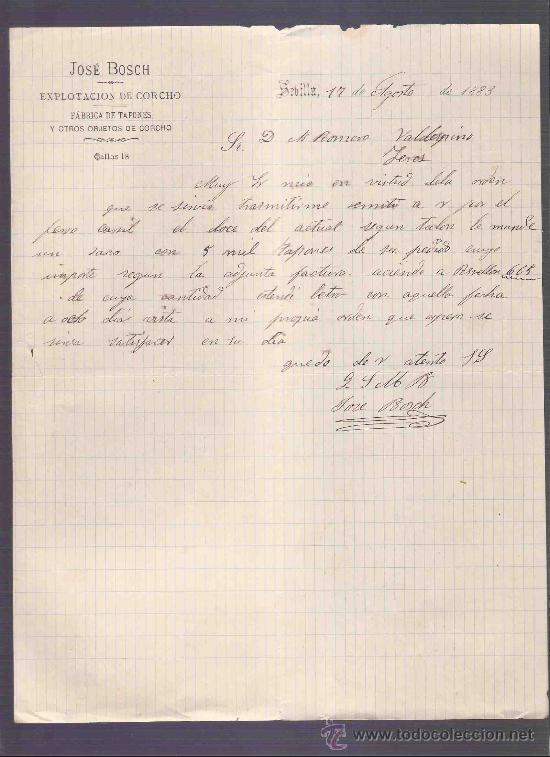 JOSÉ BOSCH
EXPLOTACION DE CORCHO
FÁBRICA DE TAPONES
Y OTROS OBJETOS DE CORCHO
Gallos 18
Sevilla, 17 de Agosto de 1883
Sr. D M Romero Valdespino
Jerez
Muy Sr mio en virtud dela orden
que se sirvio trasmitirme remito a v por el
ferro carril el doce del actual segun talon le mande
un saco con 5 mil tapones de su pedido cuyo
importe segun la adjunta factura aciende a Rvellon 605
de cuya cantidad etendi letra con aquella fecha
a ocho dia vista a mi propia orden que espero se
sirva satisfacer en su dia
quedo de v atento SS
Q S M B
Jose Bosch
www.todocoleccion.net